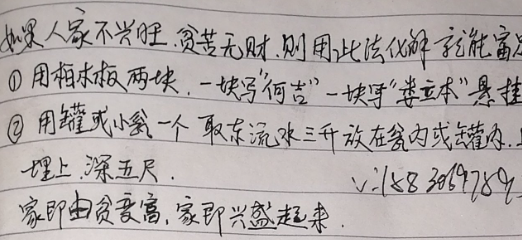 如果人家不兴旺.贫苦无财.则用此法化解就能富
①用柏木板两块.一块写"何吉"一块写"娄立本"悬挂
②用罐或小瓮一个 取东流水三升放在瓮内或罐内.
埋上.深五尺.
家即由贫变富,家即兴盛起来.